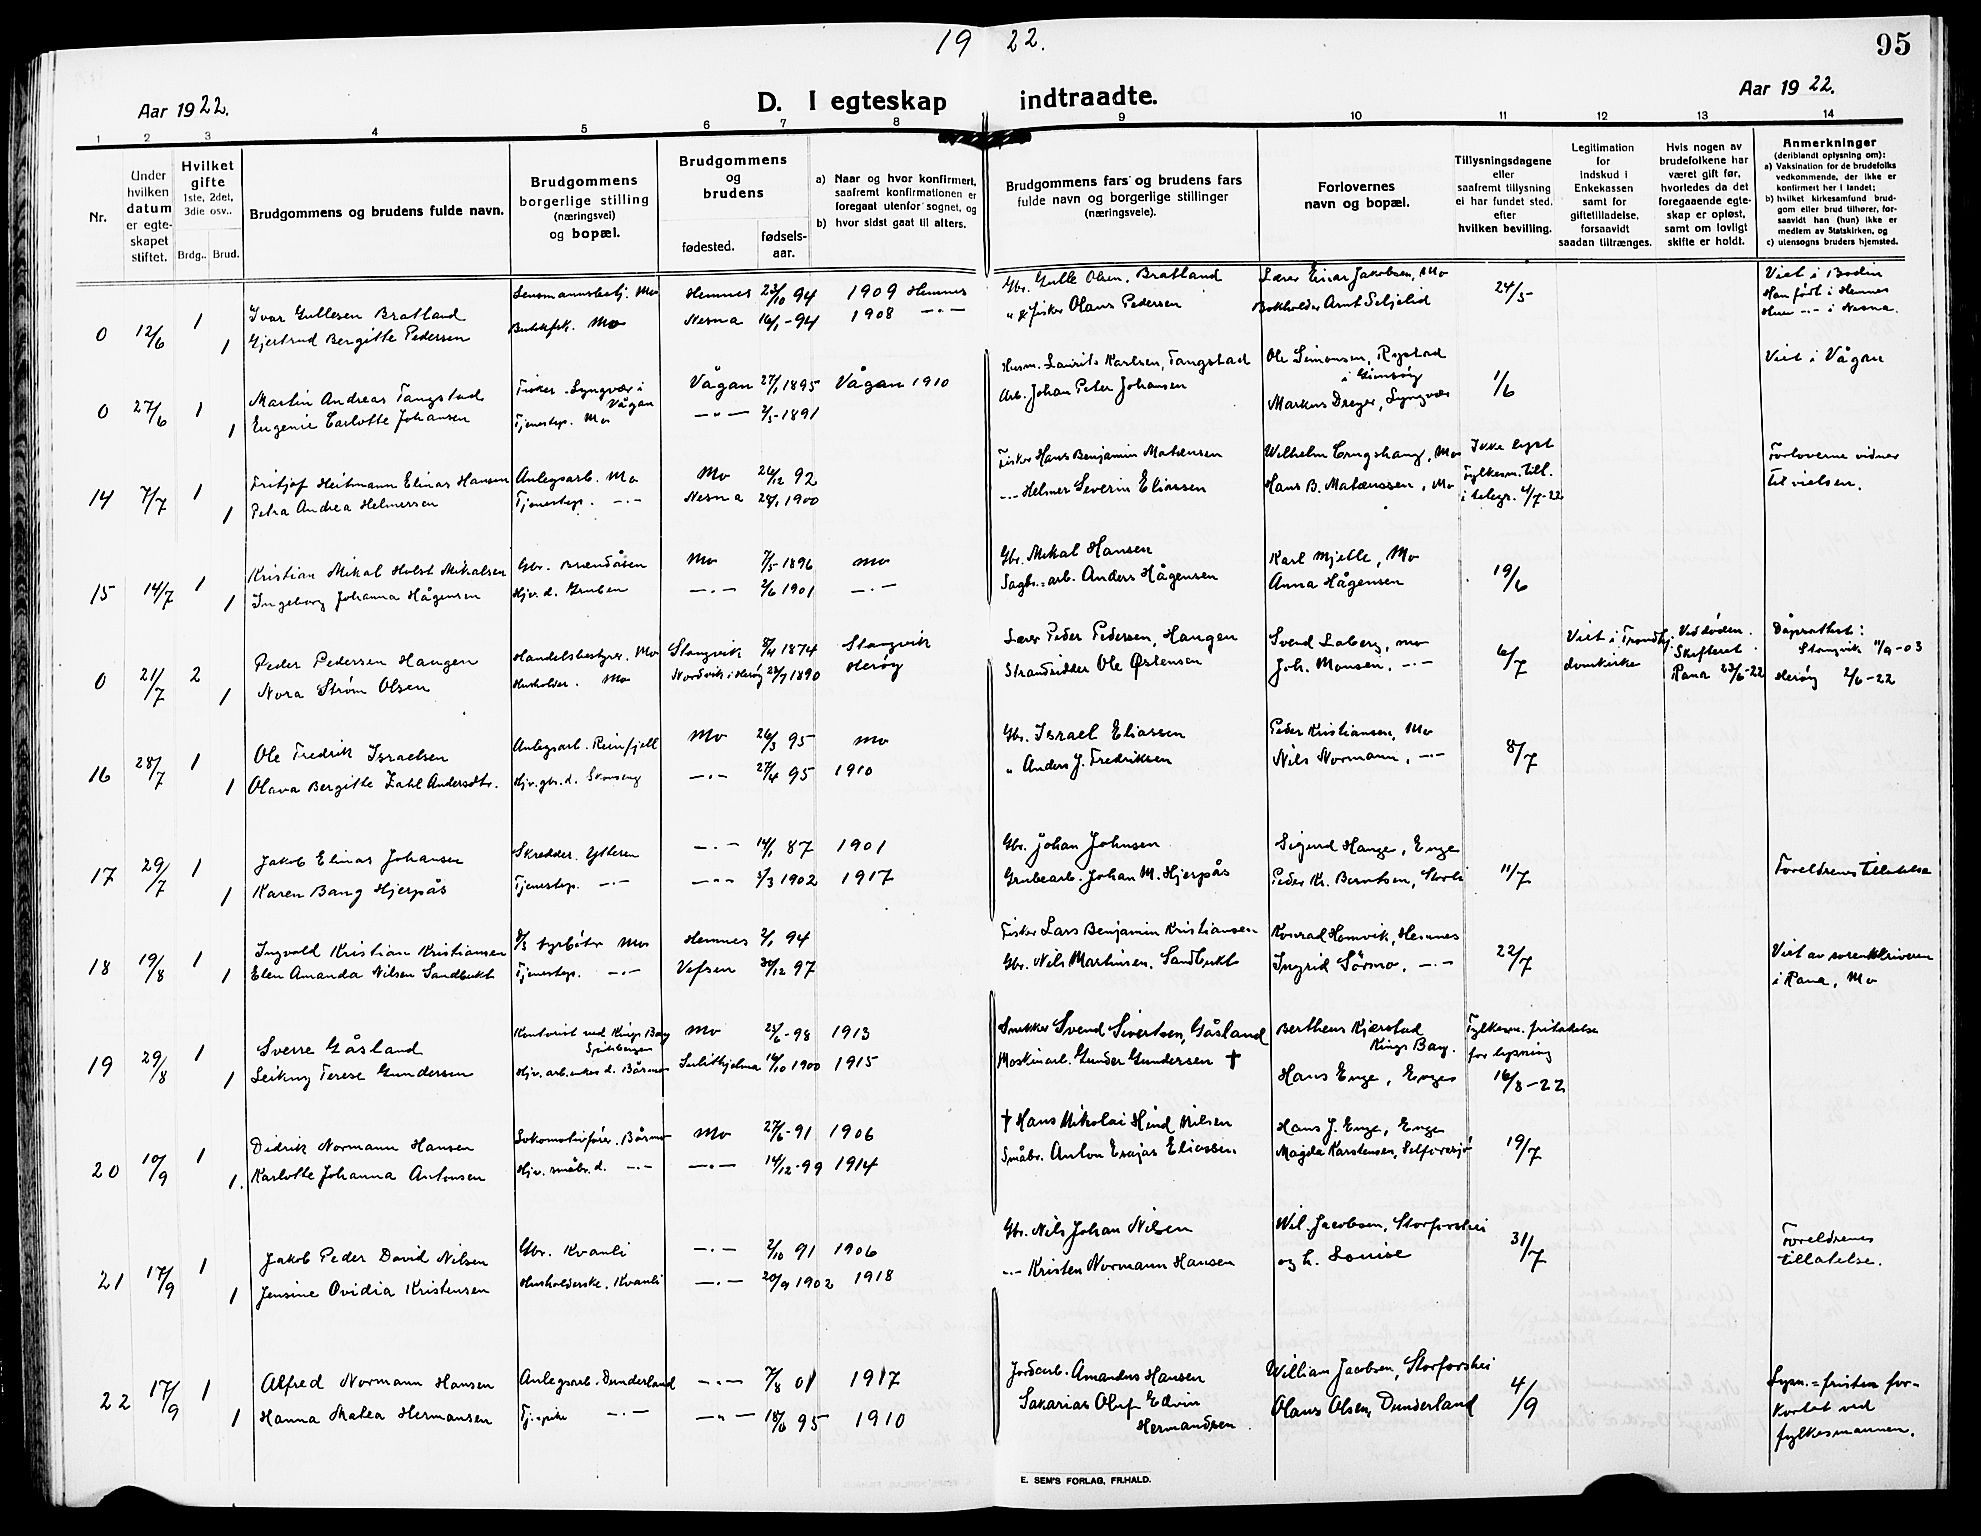 19 22.
95
Aar 1922.
D. I egteskap indtraadte.
Aar 1922.
1 2 3 4 5 6 7 8 9 10 11 12 13 14
Nr.
Under
hvilken
datum
er egte-
skapet
stiftet.
Hvilket
gifte
1ste, 2det,
3die osv..
Brdg.. Brud.
Brudgommens og brudens fulde navn.
Brudgommens
borgerlige stilling
(næringsvei)
og bopæl.
Brudgommens
og
brudens
fødested.
fødsels-
aar.
a) Naar og hvor konfirmert,
saafremt konfirmationen er
foregaat utenfor sognet, og
b) hvor sidst gaat til alters.
Brudgommens fars og brudens fars
fulde navn og borgerlige stillinger
(næringsveie).
Forlovernes
navn og bopæl.
Tillysningsdagene
eller
saafremt tillysning
ei har fundet sted,
efter
hvilken bevilling.
Legitimation
for
indskud i
Enkekassen
samt for
giftetilladelse,
forsaavidt
saadan tiltrænges.
Hvis nogen av
brudefolkene har
været gift før,
hvorledes da det
foregaaende egte-
skap er opløst,
samt om lovligt
skifte er holdt.
Anmerkninger
(deriblandt oplysning om):
a) Vaksination for de brudefolks
vedkommende, der ikke er
konfirmert her i landet;
b) hvilket kirkesamfund brud-
gom eller brud tilhører, for-
saavidt han (hun) ikke er
medlem av Statskirken, og
c) utensogns bruders hjemsted.
0 12/6 1 Ivar Gullesen Bratland Lensmannsbetj. Mo Hemnes 23/10 94 1909 Hemnes Gbr. Gulle Olsen, Bratland Lærer Einar Jakobsen, Mo 24/5 Viet i Bodin
Han født i Hemnes
1 Gjertrud Bergitte Pedersen Butikfsk. Mo Nesna 16/1-94 1908 -"- " & fisker Olaus Pedersen Bokholder Arnt Seljelid Hun -"- i Nesna.
0 27/6 1 Martin Andreas Tangstad Fisker. Lyngvær i Vågan Vågan 27/1 1895 Vågan 1910 Husm. Laurits Karlsen, Tangstad Ole Simonsen, Rystad i Gimsøy 1/6 Viet i Vågan
1 Eugenie Carlotte Johansen Tjenestep. Mo -"- 2/5-1891 Arb. Johan Peter Johansen Markus Dreyer, Lyngvær
14 7/7 1 Fritjof Heitmann Elinas Hansen Anlegsarb. Mo Mo 26/12 92 Fisker Hans Benjamin Matæusen Wilhelm Mo Ikke lyst
Fylkesm. till.
i telegr. 4/7-22 Forloverne vidner
til vielsen.
1 Petra Andrea Helmersen Tjenestep. -"- Nesna 28/1 1900 -"- Helmer Severin Eliassen Hans B. Matæussen, Mo
15 14/7 1 Kristian Mikal Holst Mikalsen Gbr. Brændåsen Mo 7/5 1896 Mo Gbr. Mikal Hansen Karl Mjelle, Mo 19/6
1 Ingeborg Johanna Hågensen Hjv. d. Gruben -"- 2/6 1901 -"- Sagbr.=arb. Anders Hågensen Anna Hågensen
0 21/7 2 Peder Pedersen Haugen Handelsbestyrer. Mo Stangvik 8/4 1874 Stangvik Lærer Peder Pedersen, Haugen Svend Laberg, Mo 6/7 Viet i Trondhj.
domkirke Ved døden.
Skifteret.
Rana 23/6-22 Dåpsattest:
Stangvik 11/9-03
1 Nora Strøm Olsen Husholder. Mo Nordvik i Herøy 28/7 1890 Herøy Strandsidder Ole Østensen Joh. Monsen, -"- Herøy 2/6-22
16 28/7 1 Ole Fredrik Israelsen Anlegsarb. Reinfjell Mo 26/3 95 Mo Gbr. Israel Eliassen Peder Kristiansen, Mo 8/7
1 Olava Bergitte Zahl Andersdtr. Hjv. gbr. d. Skonseng -"- 27/4 95 1910 " Anders J. Fredriksen Nils Normann, -"-
17 29/7 1 Jakob Elinas Johansen Skredder. Ytteren -"- 14/1 87 1901 Gbr. Johan Johnsen Sigurd Hauge, Enge 11/7 Foreldrens tillatelse
1 Karen Bang Hjerpås Tjenestep. -"- -"- 3/3 1902 1917 Grubearb. Johan M. Hjerpås Peder Kr. Berntsen, Storli
18 19/8 1 Ingvald Kristian Kristiansen Mo Hemnes 2/1 94 Fisker Lars Benjamin Kristiansen Konrad Homvik, Hemnes 22/7 Viet av sorenskriveren
i Rana, Mo
1 Elen Amanda Nilsen Sandbukt Tjenestep. -"- Vefsen 30/12 97 Gbr. Nils Martinsen, Sandbukt Ingrid Sørmo, -"-
19 29/8 1 Sverre Gåsland Kontorist ved Kings Bay
Spitsbergen Mo 23/6-98 1913 Snekker Svend Sivertsen, Gåsland Bertheus Kjærstad
Kings Bay. Fylkesm. fritakelse
for lysning
16/8-22
1 Leikny Terese Gundersen Hjv. arb. enkes d. Båsmo Sulithjelma 16/10 1900 1915 Maskinarb. Gunder Gundersen † Hans Enge, Enge
20 10/9 1 Didrik Normann Hansen Lokomotivfører. Båsmo Mo 27/6-91 1906 † Hans Nikolai Hind Nilsen Hans J. Enge, Enge 19/7
1. Karlotte Johanna Antonsen Hjv. småbr. d. -"- -"- 14/12-99 1914 Småbr. Anton Esajas Eliassen Magda Karstensen, Selforssjø
21 17/9 1 Jakob Peder David Nilsen Gbr. Kvanli -"- 2/10 91 1906 Gbr. Nils Johan Nilsen Wil. Jacobsen, Storforshei 31/7 Foreldrenes
tillatelse.
1 Jensine Ovidia Kristensen Husholderske, Kvanli -"- 20/9 1902 1918 -"- Kristen Normann Hansen og h. Louise
22 17/9 1 Alfred Normann Hansen Anlegsarb. Dunderland -"- 7/8 01 1917 Jordarb. Amandus Hansen William Jacobsen, Storforshei 4/9 Lysn.=fristen for-
kortet ved
fylkesmannen.
1 Hanna Malea Hermansen Tj. pike -"- -"- 18/6 95 1910 Sakarias Oluf Edvin
Hermansen Olaus Olsen, Dunderland
E. SEM'S FORLAG, FR.HALD.